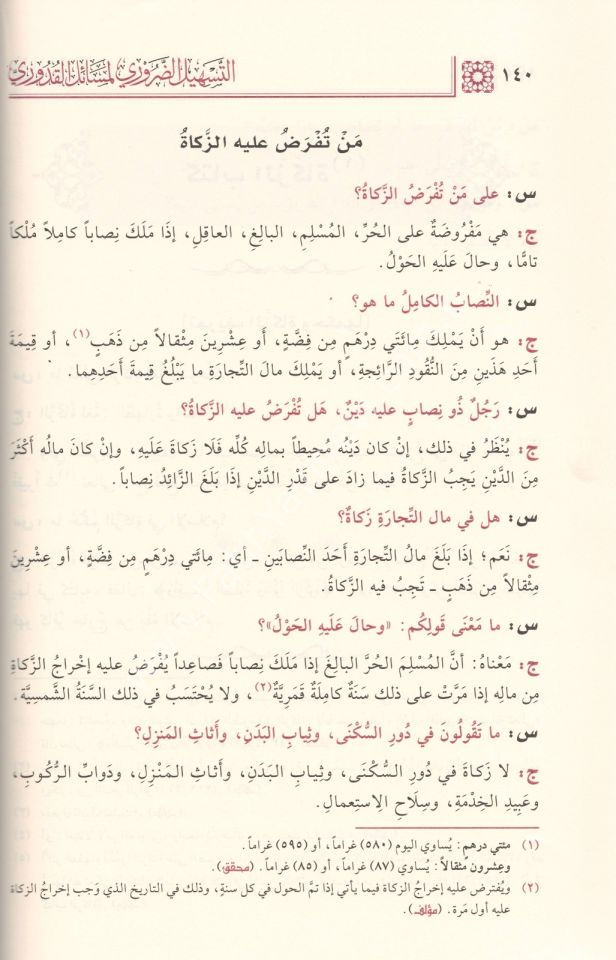 ١٤٠ التسهيل الضروري لمسائل القدوري
مَنْ تُفْرَضُ عليه الزَّكاةُ
س: على مَنْ تُفْرَضُ الزَّكاةُ؟
ج: هي مَفْرُوضَةٌ على الحُرِّ، المُسْلِمِ، البالِغِ، العاقِلِ، إذَا مَلَكَ نِصاباً كامِلاً مُلْكاً
تامًّا، وحالَ عَلَيهِ الحَوْلُ.
س: النِّصابُ الكامِلُ ما هو؟
ج: هو أَنْ يَمْلِكَ مِائَتي دِرْهَمٍ مِن فِضَّةٍ، أَو عِشْرِينَ مِثْقالاً مِن ذَهَبٍ(١)، أو قِيمَةَ
أَحَدِ هَذَينِ مِنَ النُّقودِ الرَّائِجةِ، أو يَمْلِكَ مالَ التِّجارَةِ ما يَبْلُغُ قِيمةَ أَحَدِهِما.
س: رَجُلٌ ذُو نِصابٍ عليه دَيْنٌ، هَل تُفْرَضُ عليه الزَّكاةُ؟
ج: يُنْظَرُ في ذلك، إنْ كان دَيْنُه مُحِيطاً بمالِه كُلِّه فَلَا زَكاةَ عَلَيهِ، وإنْ كانَ مالُه أَكْثَرَ
مِنَ الدَّيْنِ يَجِبُ الزَّكاةُ فيما زادَ على قَدْرِ الدَّيْنِ إذَا بَلَغَ الزَّائِدُ نِصاباً.
س: هل في مال التِّجارَةِ زَكاةٌ؟
ج: نَعَم؛ إذَا بَلَغَ مالُ التِّجارَةِ أَحَدَ النِّصابَينِ ـ أي: مِائَتي دِرْهَمٍ مِن فِضَّةٍ، أو عِشْرِينَ
مِثْقالاً مِن ذَهَبٍ ـ تَجِبُ فيه الزَّكاةُ.
س: ما مَعْنَى قَولِكُم: «وحالَ عَلَيهِ الحَوْلُ»؟
ج: مَعْناهُ: أنَّ المُسْلِمَ الحُرَّ البالِغَ إذا مَلَكَ نِصاباً فَصاعِداً يُفْرَضُ عليه إخْراجُ الزَّكاةِ
مِن مالِه إذا مَرَّتْ على ذلك سَنَةٌ كامِلَةٌ قَمَرِيَّةٌ(٢)، ولا يُحْتَسَبُ في ذلك السَّنَةُ الشَّمْسِيَّة.
س: ما تَقُولُونَ في دُورِ السُّكْنَى، وثِيابِ البَدَنِ، وأَثاثِ المَنزِلِ؟
ج: لا زَكاةَ في دُورِ السُّكْنَى، وثِيابِ البَدَنِ، وأَثاثِ المَنْزِلِ، ودَوابِّ الرُّكُوبِ،
وعَبِيدِ الخِدْمَةِ، وسِلَاحِ الاِستِعمالِ.
(١) مئتي درهم: يُساوي اليوم (٥٨٠) غراماً، أو (٥٩٥) غراماً.
وعِشرون مثقالاً: يُساوي (٨٧) غراماً، أو (٨٥) غراماً. (محقق).
(٢) ويُفترض عليه إخراجُ الزكاة فيما يأتي إذا تمَّ الحول في كل سنةٍ، وذلك في التاريخ الذي وَجب إخراجُ الزكاة
عليه أول مَرة. (مؤلف).